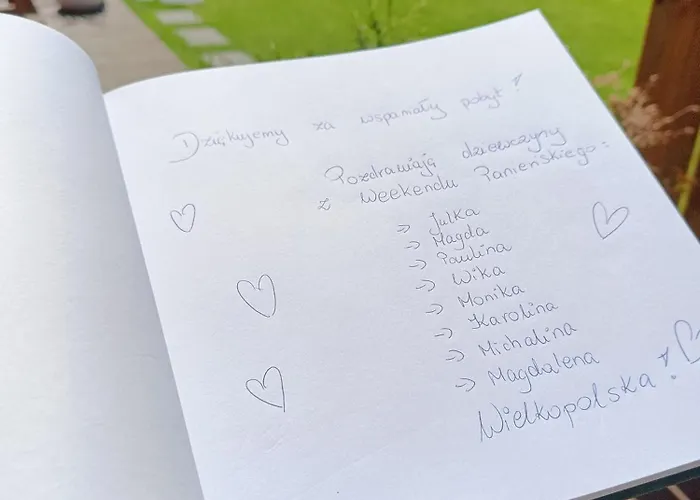 Dziękujemy za wspaniały pobyt!
Pozdrawiają dziewczyny
z Weekendu Panieńskiego:
→ Julka
→ Magda
→ Paulina
→ Wika
→ Monika
→ Karolina
→ Michalina
→ Magdalena
Wielkopolska!